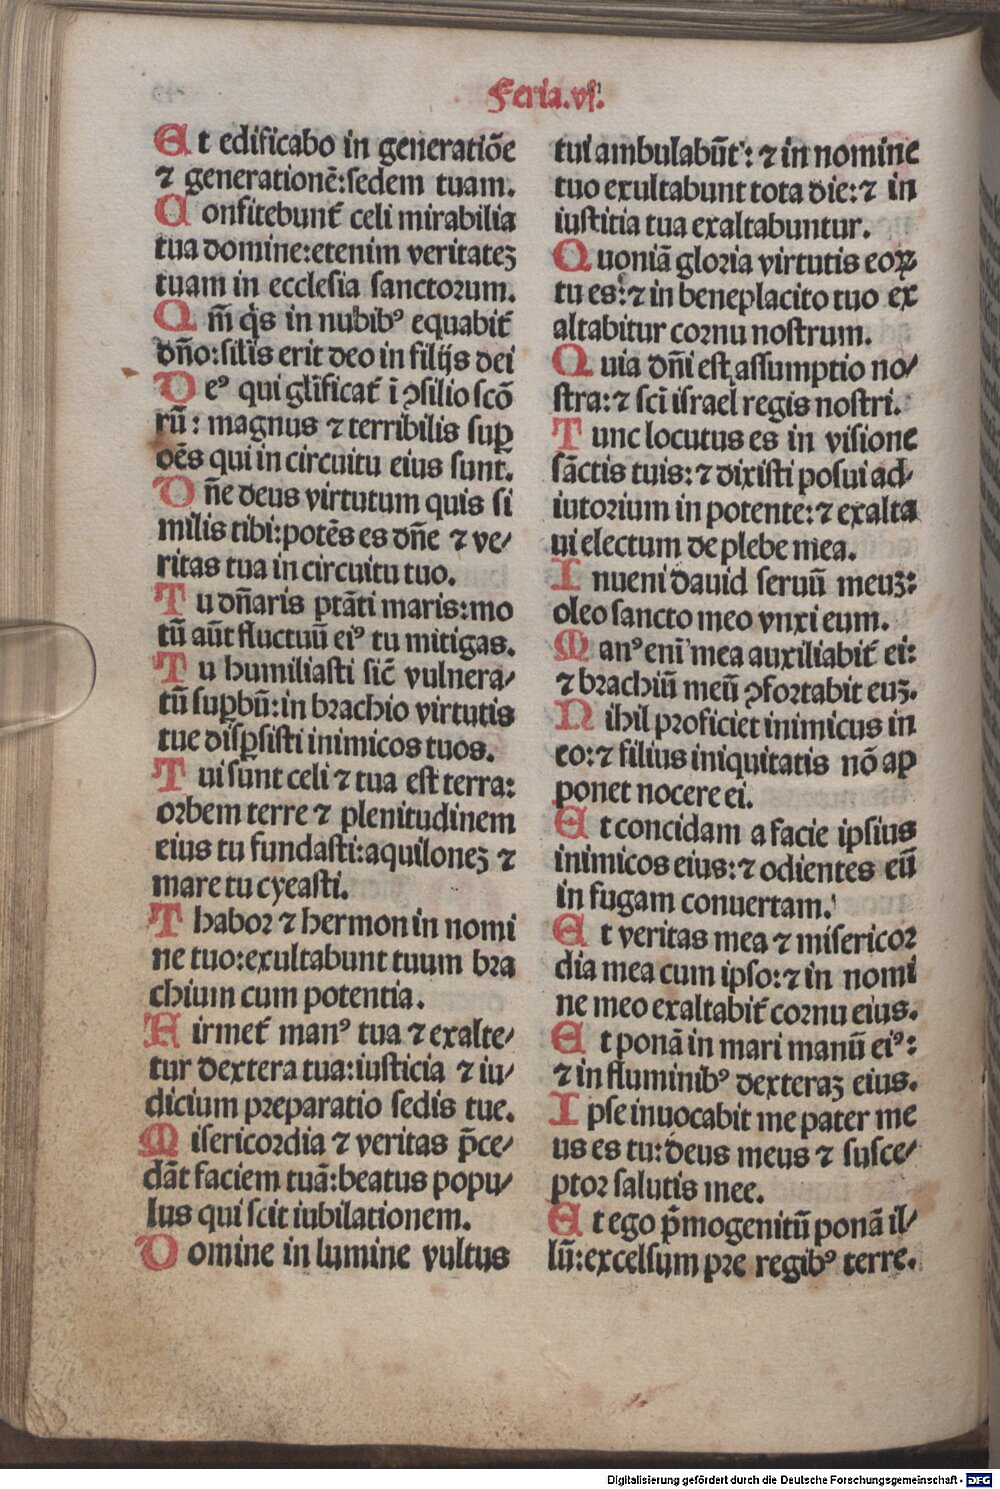 Feria.vj.
Et edificabo in generatiõe
⁊ generationẽ:sedem tuam.
Confitebunt̃ celi mirabilia
tua domine:etenim veritateꝫ
tuam in ecclesia sanctorum.
Qm̃ q̃s in nubibꝰ equabit̃
dño:sil̃is erit deo in filijs dei
Deꝰ qui gl̃ificat̃ ĩ ꝯsilio scõ
rũ: magnus ⁊ terribilis suꝑ
oẽs qui in circuitu eius sunt.
Dñe deus virtutum quis si
milis tibi:potẽs es dñe ⁊ ve/
ritas tua in circuitu tuo.
Tu dñaris ptãti maris:mo
tũ aũt fluctuũ eiꝰ tu mitigas.
Tu humiliasti sic̃ vulnera/
tũ suꝑbũ:in brachio virtutis
tue disꝑsisti inimicos tuos.
Tui sunt celi ⁊ tua est terra:
orbem terre ⁊ plenitudinem
eius tu fundasti:aquiloneꝫ ⁊
mare tu cyeasti.
Thabor ⁊ hermon in nomi
ne tuo:exultabunt tuum bra
chium cum potentia.
Firmet̃ manꝰ tua ⁊ exalte/
tur dextera tua:iusticia ⁊ iu/
dicium preparatio sedis tue.
Misericordia ⁊ veritas p̃ce/
dãt faciem tuã:beatus popu/
lus qui scit iubilationem.
Domine in lumine vultus
tui ambulabũt: ⁊ in nomine
tuo exultabunt tota die:⁊ in
iustitia tua exaltabuntur.
Quoniã gloria virtutis eoꝝ
tu es:⁊ in beneplacito tuo ex
altabitur cornu nostrum.
Quia dñi est assumptio no/
stra:⁊ sc̃i israel regis nostri.
Tunc locutus es in visione
sãctis tuis:⁊ dixisti posui ad/
iutorium in potente:⁊ exalta
ui electum de plebe mea.
Inueni dauid seruũ meuꝫ:
oleo sancto meo vnxi eum.
Manꝰ eni᷑ mea auxiliabit̃ ei:
⁊ brachiũ meũ ꝯfortabit euꝫ.
Nihil proficiet inimicus in
eo:⁊ filius iniquitatis nõ ap
ponet nocere ei.
Et concidam a facie ipsius
inimicos eius:⁊ odientes eũ
in fugam conuertam.
Et veritas mea ⁊ misericor
dia mea cum ipso:⁊ in nomi
ne meo exaltabit̃ cornu eius.
Et ponã in mari manũ eiꝰ:
⁊ in fluminibꝰ dexteraꝫ eius.
Ipse inuocabit me pater me
us es tu:deus meus ⁊ susce/
ptor salutis mee.
Et ego p̃mogenitũ ponã il/
lũ:excelsum pre regibꝰ terre.
Digitalisierung gefördert durch die Deutsche Forschungsgemeinschaft - DFG